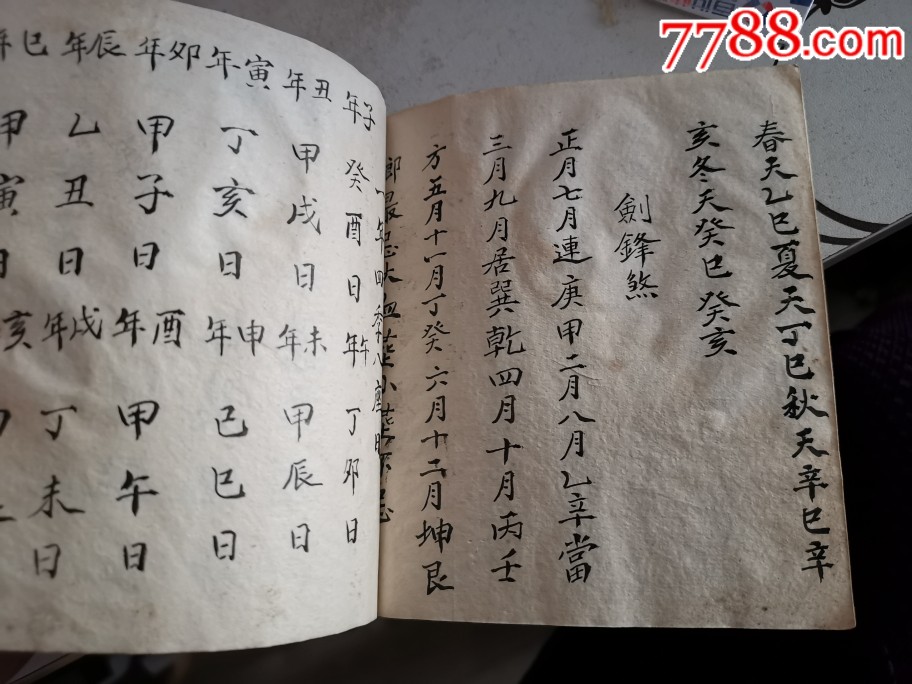 7788.com
春天乙巳夏天丁巳秋天辛巳辛
亥冬天癸巳癸亥
劍鋒煞
正月七月連庚甲二月八月乙辛當
三月九月居巽乾四月十月丙壬
方五月十一月丁癸六月十二月坤艮
子年癸酉日午年丁卯日
丑年甲戌日未年甲辰日
寅年丁亥日申年己巳日
卯年甲子日酉年甲午日
辰年乙丑日戌年丁未日
巳年甲寅日亥